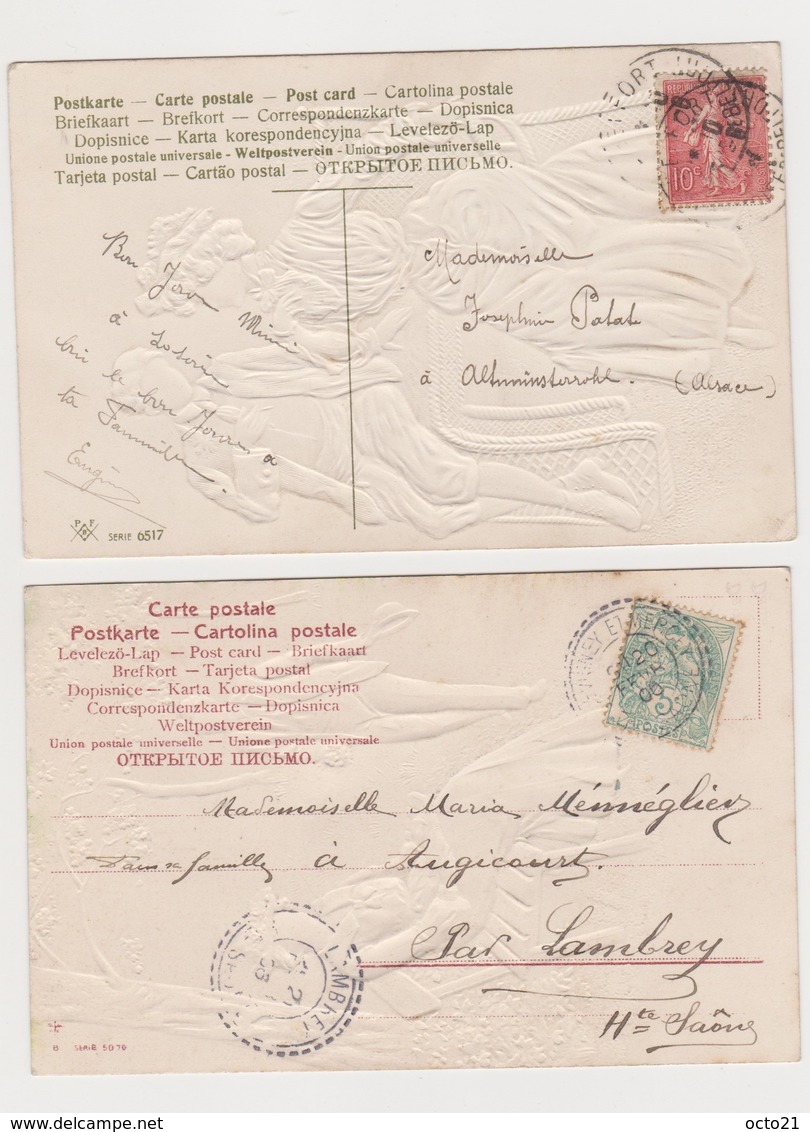 Postkarte — Carte postale — Post card — Cartolina postale
Briefkaart — Brefkort — Correspondenzkarte — Dopisnica
Dopisnice — Karta korespondencyjna — Levelezö-Lap
Unione postale universale - Weltpostverein - Union postale universelle
Tarjeta postal — Cartão postal — ОТКРЫТОЕ ПИСЬМО.
10c
Bon
à
bin le bon
ta
Mademoiselle
Josephin Patat
à Altmünsterrohl. (Alsace)
P F
SERIE 6517
Carte postale
Postkarte — Cartolina postale
Levelezö-Lap — Post card — Briefkaart
Brefkort — Tarjeta postal
Dopisnice — Karta Korespondencyjna
Correspondenzkarte — Dopisnica
Weltpostverein
Union postale universelle — Unione postale universale
ОТКРЫТОЕ ПИСЬМО.
POSTES
Mademoiselle Maria
Dans sa famille à Augicourt.
Par Lambrey
Hte Saône
LAMBREY
delcampe.net
octo21